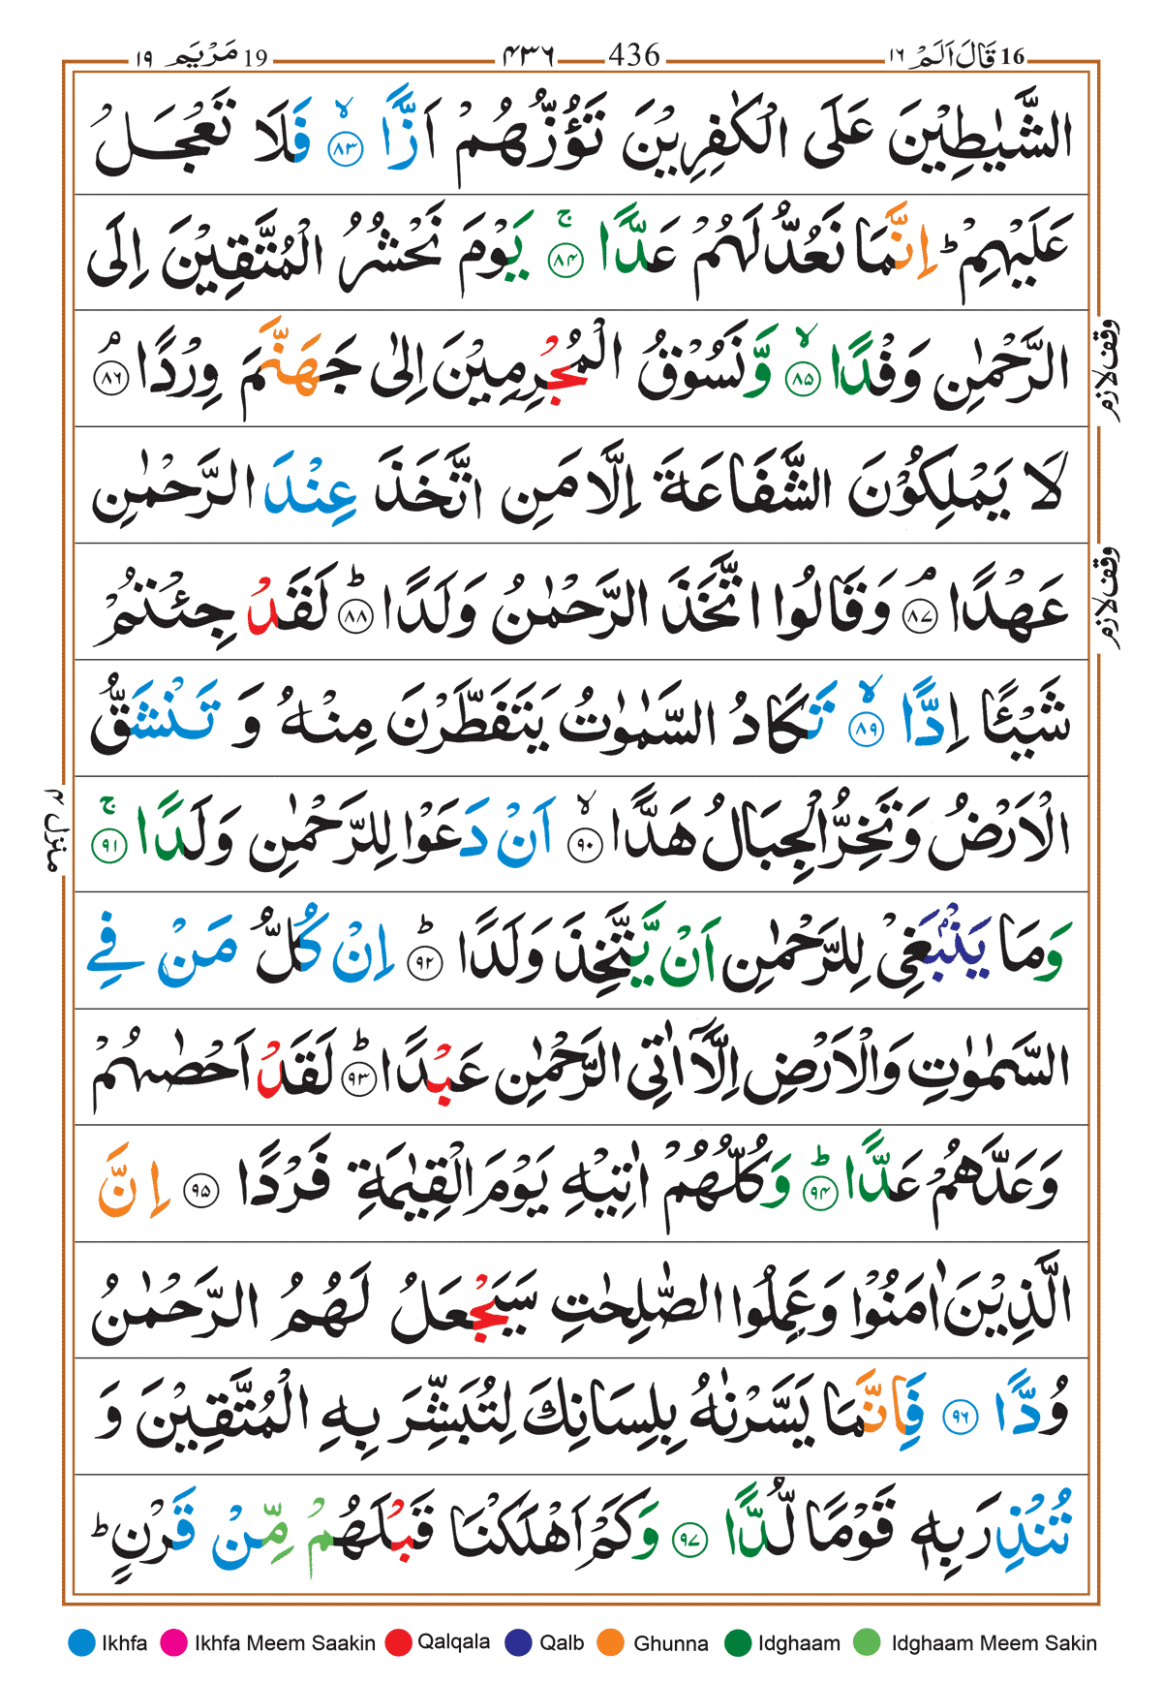 16 قَالَ اَلَمْ ١٦ 436 ٤٣٦ 19 مَرْيَم ١٩
الشَّيٰطِيْنَ عَلَى الْكٰفِرِيْنَ تَؤُزُّهُمْ اَزًّا ۙ‏﴿۸۳﴾ فَلَا تَعْجَلْ
عَلَيْهِمْ ؕ اِنَّمَا نَعُدُّ لَهُمْ عَدًّا ۚ‏﴿۸۴﴾ يَوْمَ نَحْشُرُ الْمُتَّقِيْنَ اِلَى
الرَّحْمٰنِ وَفْدًا ۙ‏﴿۸۵﴾ وَّنَسُوْقُ الْمُجْرِمِيْنَ اِلٰى جَهَنَّمَ وِرْدًا ۘ‏﴿۸۶﴾
وقف لازم
لَا يَمْلِكُوْنَ الشَّفَاعَةَ اِلَّا مَنِ اتَّخَذَ عِنْدَ الرَّحْمٰنِ
عَهْدًا ۘ‏﴿۸۷﴾ وَقَالُوا اتَّخَذَ الرَّحْمٰنُ وَلَدًا ؕ‏﴿۸۸﴾ لَقَدْ جِئْتُمْ
وقف لازم
شَيْئًا اِدًّا ۙ‏﴿۸۹﴾ تَكَادُ السَّمٰوٰتُ يَتَفَطَّرْنَ مِنْهُ وَ تَنْشَقُّ
الْاَرْضُ وَتَخِرُّ الْجِبَالُ هَدًّا ۙ‏﴿۹۰﴾ اَنْ دَعَوْا لِلرَّحْمٰنِ وَلَدًا ۚ‏﴿۹۱﴾
منزل ۴
وَمَا يَنْۢبَغِىْ لِلرَّحْمٰنِ اَنْ يَّتَّخِذَ وَلَدًا ؕ‏﴿۹۲﴾ اِنْ كُلُّ مَنْ فِى
السَّمٰوٰتِ وَالْاَرْضِ اِلَّاۤ اٰتِى الرَّحْمٰنِ عَبْدًا ؕ‏﴿۹۳﴾ لَقَدْ اَحْصٰٮهُمْ
وَعَدَّهُمْ عَدًّا ؕ‏﴿۹۴﴾ وَكُلُّهُمْ اٰتِيْهِ يَوْمَ الْقِيٰمَةِ فَرْدًا‏﴿۹۵﴾ اِنَّ
الَّذِيْنَ اٰمَنُوْا وَعَمِلُوا الصّٰلِحٰتِ سَيَجْعَلُ لَهُمُ الرَّحْمٰنُ
وُدًّا‏﴿۹۶﴾ فَاِنَّمَا يَسَّرْنٰهُ بِلِسَانِكَ لِتُبَشِّرَ بِهِ الْمُتَّقِيْنَ وَ
تُنْذِرَ بِهٖ قَوْمًا لُّدًّا‏﴿۹۷﴾ وَكَمْ اَهْلَكْنَا قَبْلَهُمْ مِّنْ قَرْنٍ ؕ
Ikhfa Ikhfa Meem Saakin Qalqala Qalb Ghunna Idghaam Idghaam Meem Sakin